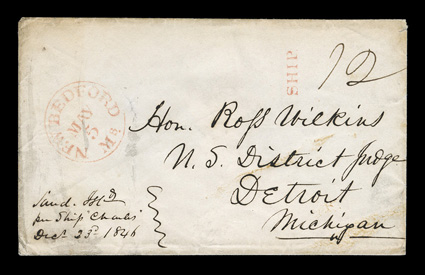 NEW BEDFORD Ms
MAY
5
SHIP
12
Hon. Ross Wilkins
U. S. District Judge
Detroit
Michigan
Sand. Isld
per Ship "Charles"
Dect. 25th 1846